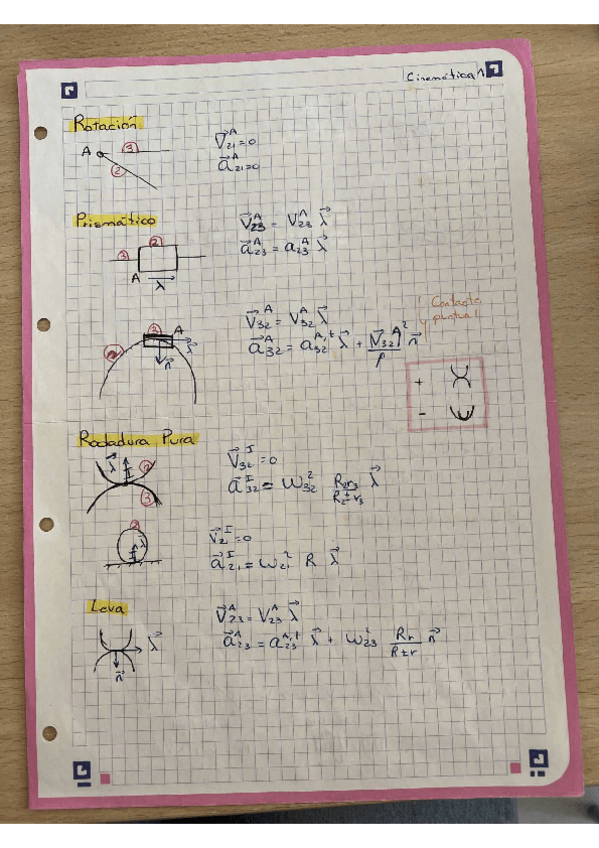 Cinemática 1
Rotación
A 3 2
V⃗₂₁ᴬ = 0
a⃗₂₁ᴬ = 0
Prismático
3 2 A λ⃗
V⃗₂₃ᴬ = V₂₃ᴬ λ⃗
a⃗₂₃ᴬ = a₂₃ᴬ λ⃗
2 3 A λ⃗ n⃗
V⃗₃₂ᴬ = V₃₂ᴬ λ⃗
a⃗₃₂ᴬ = a₃₂ᴬ,ᵗ λ⃗ + |V⃗₃₂ᴬ|²/ρ n⃗
Contacto
puntual
+
-
Rodadura Pura
λ⃗ I 2 3
V⃗₃₂ᴵ = 0
a⃗₃₂ᴵ = ω₃₂² R₂r₃/(R₂±r₃) λ⃗
2 λ I
V⃗₂₁ᴵ = 0
a⃗₂₁ᴵ = ω₂₁² R λ⃗
Leva
λ⃗ n⃗
V⃗₂₃ᴬ = V₂₃ᴬ λ⃗
a⃗₂₃ᴬ = a₂₃ᴬ,ᵗ λ⃗ + ω₂₃² Rr/(R±r) n⃗